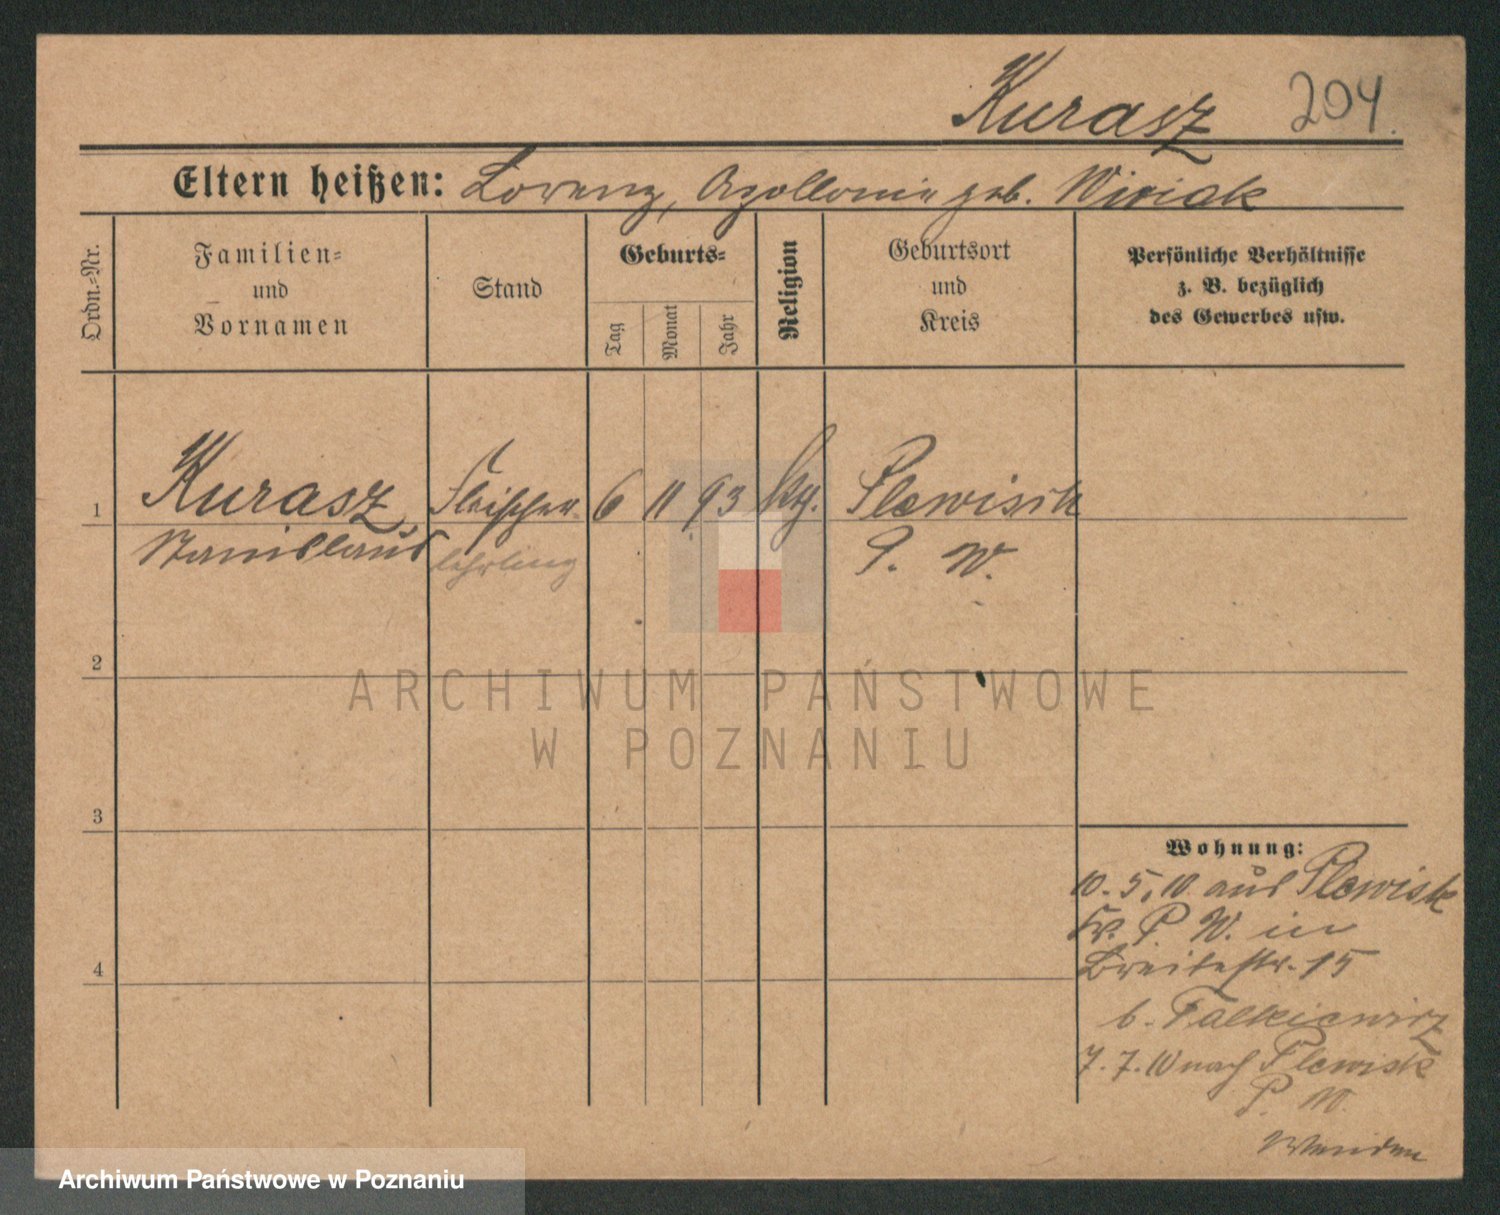 Kurasz 204.
Eltern heißen: Lorenz, Apollonia geb. Wiciak
Ordn.-Nr.
Familien-
und
Vornamen
Stand
Geburts-
Tag
Monat
Jahr
Religion
Geburtsort
und
Kreis
Persönliche Verhältnisse
z. B. bezüglich
des Gewerbes usw.
1 Kurasz, Fleischer- 6 11 93 kth. Plewisk
Stanislaus lehrling P. W.
2
ARCHIWUM PAŃSTWOWE
W POZNANIU
3
Wohnung:
10. 5. 10 aus Plewisk
Kr. P W. in
Breitestr. 15
4
b. Falkiewicz
7. 7. 10 nach Plewisk
P. W.
Wenden
Archiwum Państwowe w Poznaniu